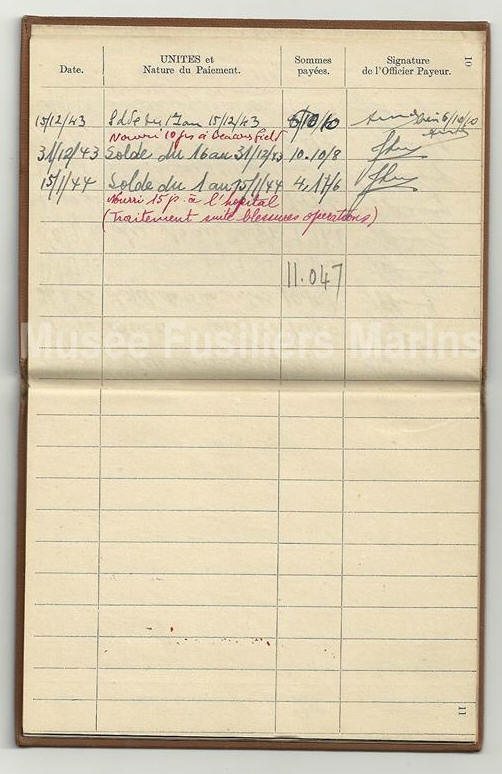 10
Date.
UNITÉS et
Nature du Paiement.
Sommes
payées.
Signature
de l'Officier Payeur.
15/12/43 Solde du 1 au 15/12/43 6/10/10 6/10/10
Nourri 10 jrs à Beaconsfield
31/12/43 Solde du 16 au 31/12/43 10.10/8
15/1/44 Solde du 1 au 15/1/44 4.17/6
Nourri 15 j. à l'hôpital
(Traitement suite blessures opérations)
11.047
Musée Fusiliers Marins
11